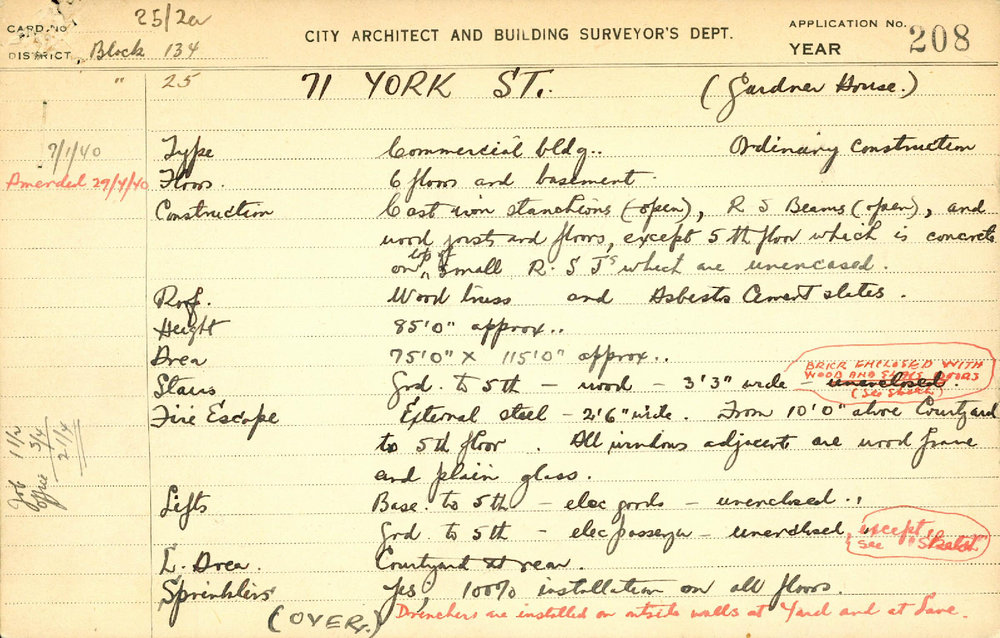 25/2a
CARD No.
CITY ARCHITECT AND BUILDING SURVEYOR'S DEPT.
APPLICATION No. 208
DISTRICT, Block 134
YEAR
" 25 71 YORK ST. (Gardner House.)
9/1/40
Type Commercial bldg.. Ordinary Construction
Amended 29/4/40
Floors. 6 floors and basement.
Construction Cast iron stanchions (open), R S Beams (open), and
wood joists and floors, except 5th floor which is concrete
on top of small R.S.J's which are unencased.
Roof. Wood truss and Asbestos Cement slates.
Height 85'0" approx..
Area 75'0" x 115'0" approx..
BRICK ENCLOSED WITH
WOOD AND DOORS
Stairs Grd. to 5th - wood - 3'3" wide - unenclosed.
(See Sketch)
Fire Escape External steel - 2'6" wide. From 10'0" above Courtyard
to 5th floor. All windows adjacent are wood frame
and plain glass.
Job 1 1/2
Office 3/4
2 1/4
Lifts Base. to 5th - elec goods - unenclosed.,
Grd. to 5th - elec passenger - unenclosed, except
see "Sketch"
L. Area. Courtyard at rear.
Sprinklers Yes, 100% installation on all floors.
(OVER.) Drenchers are installed on outside walls at Yard and at Lane.